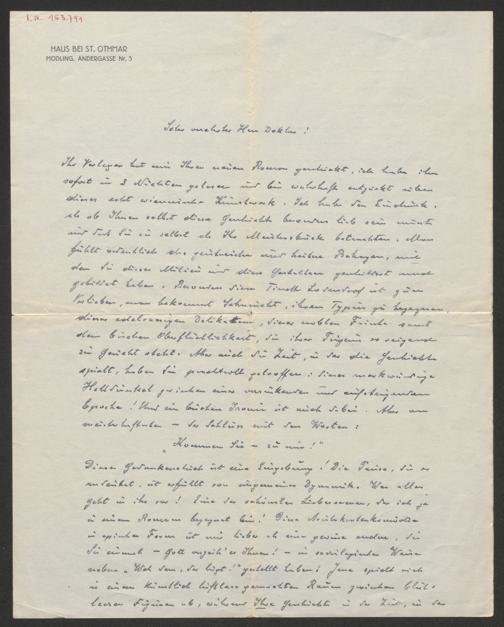 I.N. 163.791
HAUS BEI ST. OTHMAR
MÖDLING, ANDERGASSE Nr. 5
Sehr verehrter Herr Doktor!
Ihr Verleger hat mir Ihren neuen Roman geschickt, ich habe ihn
sofort in 2 Nächten gelesen und bin wahrhaft entzückt über
dieses echt wienerische Kunstwerk. Ich habe den Eindruck,
als ob Ihnen selbst diese Geschichte besonders lieb sein müsste
und daß Sie sie selbst als Ihr Meisterstück betrachten. Man
fühlt ordentlich das und heitere Behagen, mit
dem Sie dieses Milieu und diese Gestalten geschildert und
gebildet haben. Besonders diese ist zum
Verlieben, man bekommt Sehnsucht, ihrem Typus zu begegnen,
dieser Delikatesse, dieser noblen samt
dem bischen Oberflächlichkeit, die ihrer so reizend
zu Gesicht steht. Aber auch die Zeit, in der die Geschichte
spielt, haben Sie prachtvoll getroffen: dieses merkwürdige
Helldunkel zwischen einer versinkenden und aufsteigenden
Epoche! Und ein bischen Ironie ist auch dabei. Aber am
meisterhaftesten – der Schluss mit den Worten:
„Kommen Sie – zu mir!"
Dieser Gedankenstrich ist eine Eingebung! Die Pause, die er
andeutet, ist erfüllt von ungemeiner Dynamik. Was alles
geht in ihr vor! Eine der schönsten Liebesszenen, der ich je
in einem Roman begegnet bin! Diese
in epischer Form ist mir lieber als eine gewisse andere, die
Sie einmal – Gott verzeih' es Ihnen! – in Weise
neben „Weh dem, der lügt!" gestellt haben! Jene spielt sich
in einem künstlich luftleer gemachten Raum zwischen blut-
leeren Figuren ab, während Ihre Geschichte in der Zeit, in der